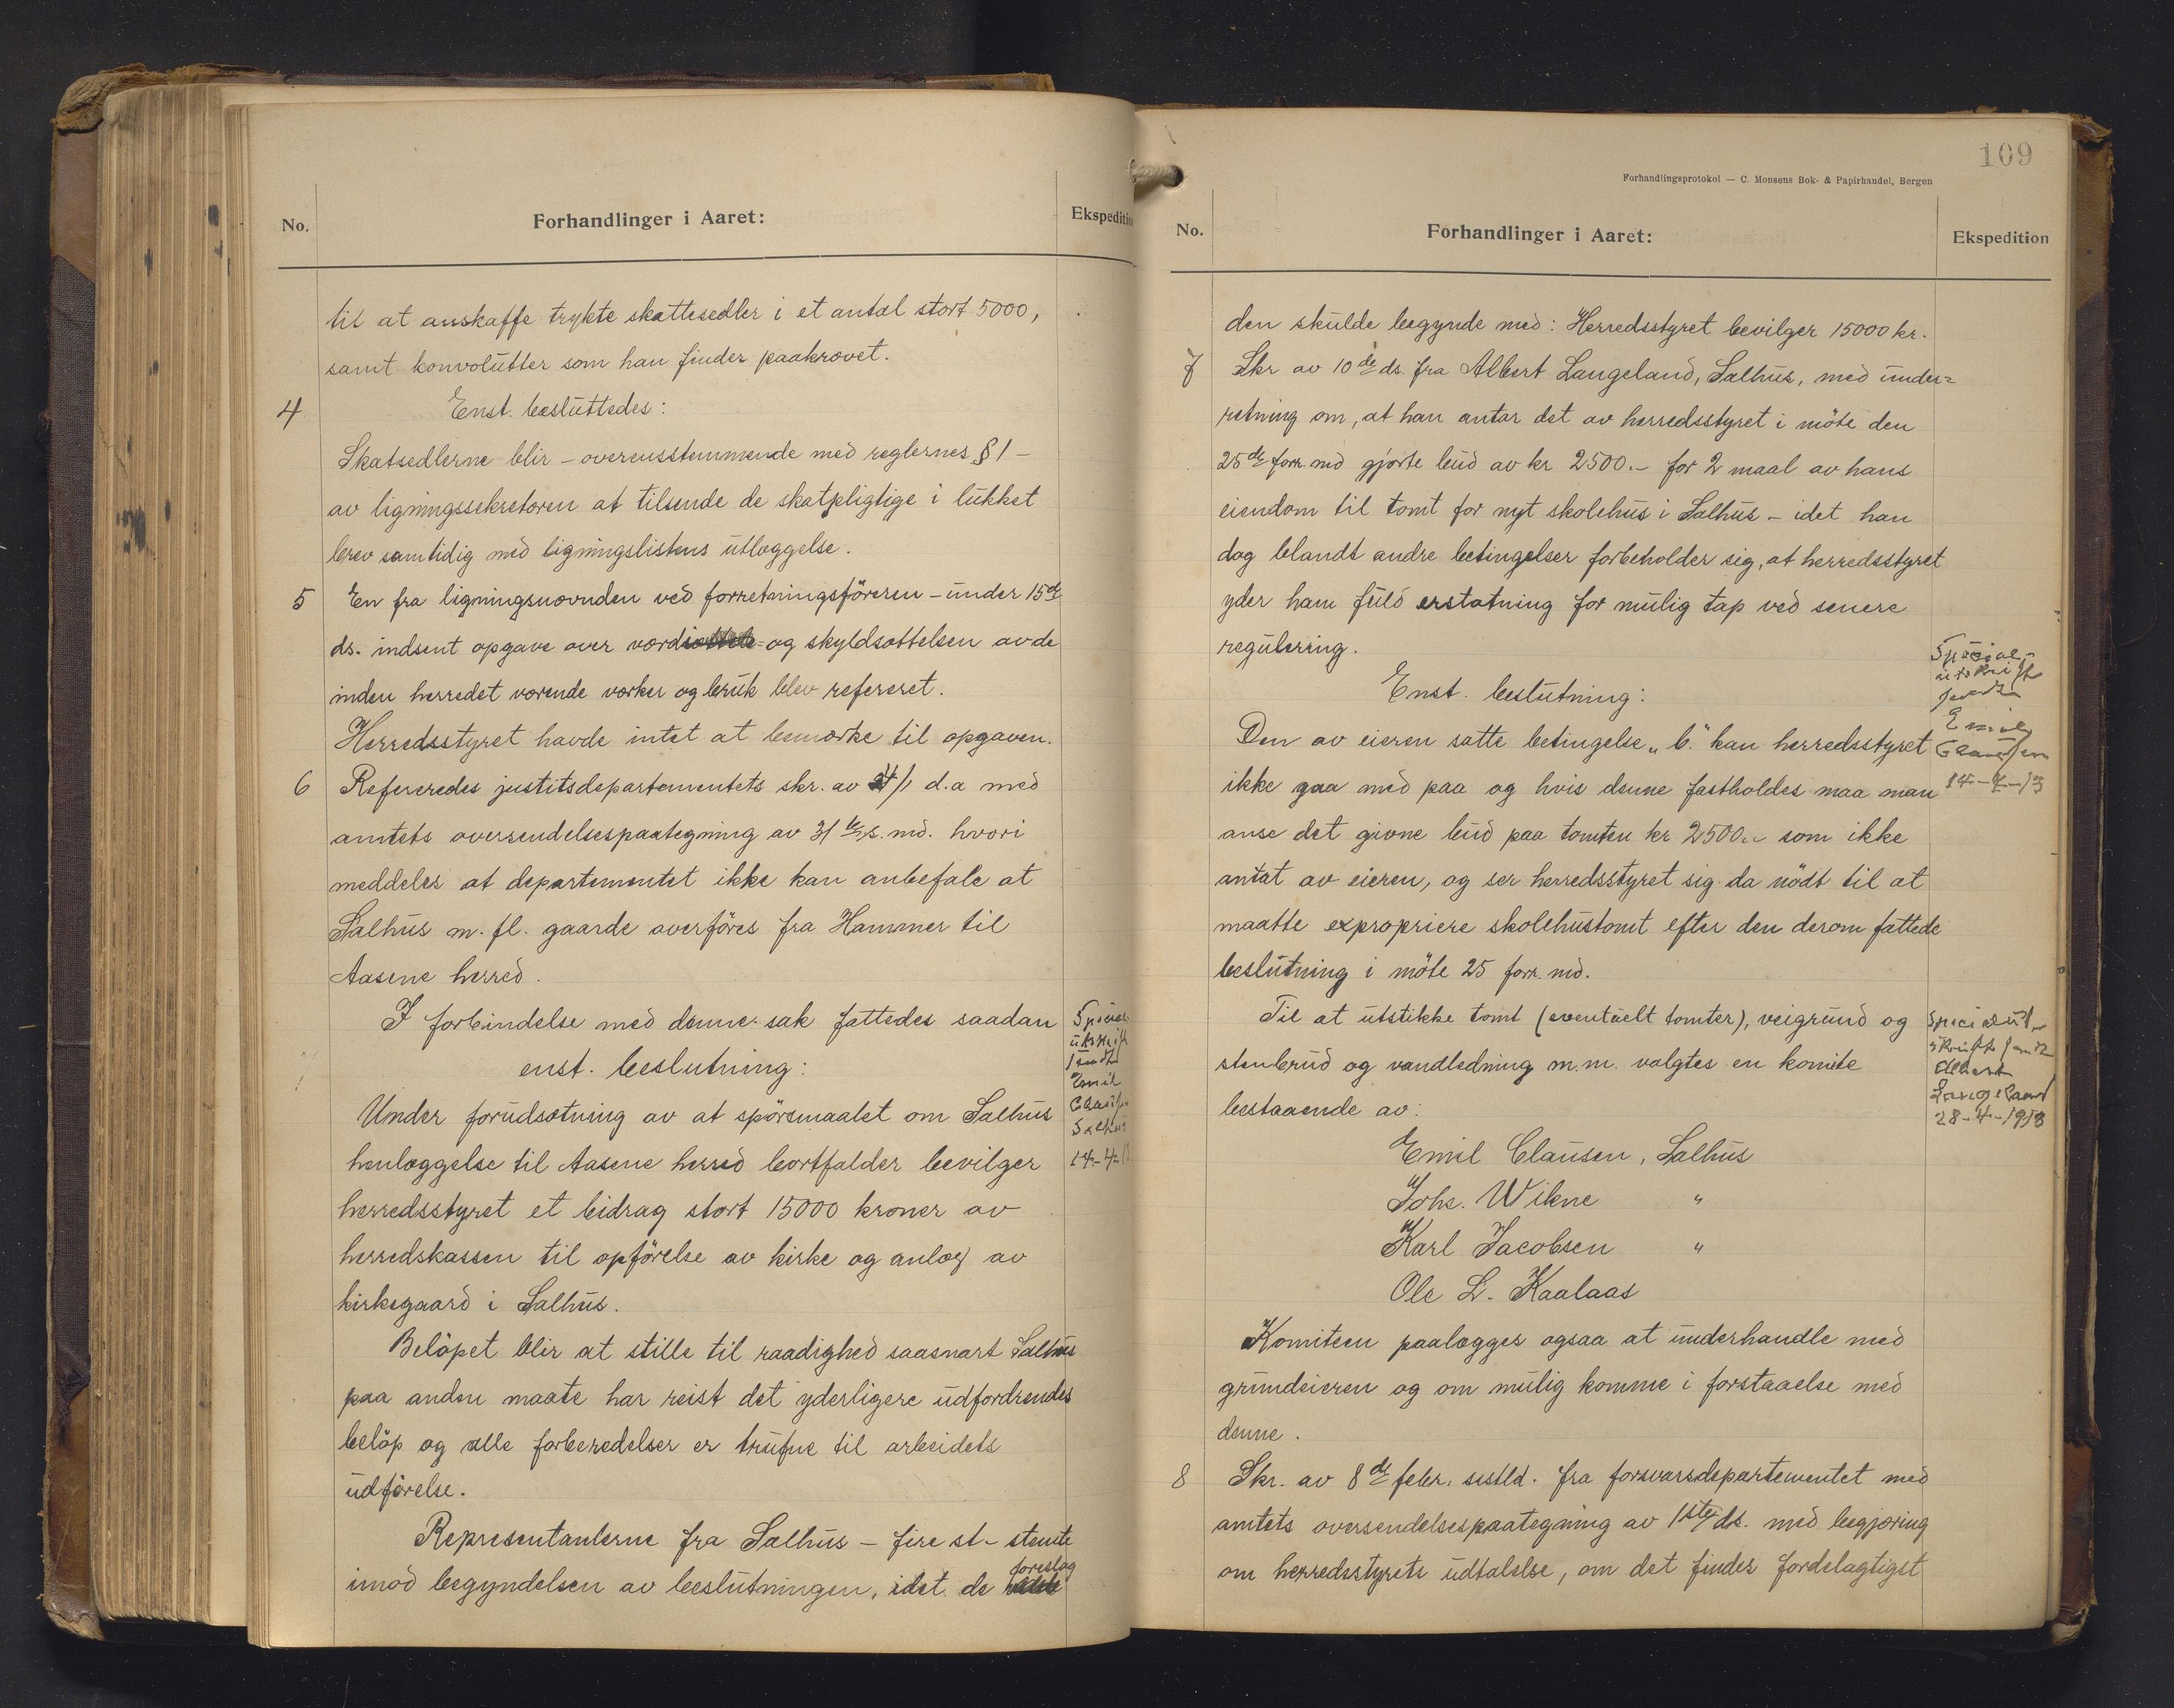 No.
Forhandlinger i Aaret:
Ekspeditio
til at anskaffe trykte skattesedler i et antal stort 5000,
samt konvolutter som han finder paakrævet.
4
Enst. besluttedes:
Skatsedlerne blir – overensstemmende med reglernes § 1 –
av ligningssekretæren at tilsende de skatpligtige i lukket
brev samtidig med ligningslistens utlæggelse.
5 En fra ligningsnævnden ved forretningsföreren – under 15de
ds. indsent opgave over værdi- og skyldsættelsen av de
inden herredet værende værker og bruk blev referert.
Herredsstyret havde intet at bemærke til opgaven.
6 Refereredes justitsdepartementets skr. av 24/1 d.a med
amtets oversendelsespaategning av 31te s. md. hvori
meddeles at departementet ikke kan anbefale at
Salhus m. fl. gaarde overföres fra Hammer til
Aasene herred.
I forbindelse med denne sak fattedes saadan
enst. beslutning:
Under forudsætning av at spörsmaalet om Salhus
henlæggelse til Aasene herred bortfalder bevilger
herredsstyret et bidrag stort 15000 kroner av
herredskassen til opförelse av kirke og anlæg av
kirkegaard i Salhus.
Belöpet blir at stille til raadighed saasnart Salhus
paa anden maate har reist det yderligere udfordrendes
belöp og alle forberedelser er trufne til arbeidets
udförelse.
Representanterne fra Salhus – fire st – stemte
imod begyndelsen av beslutningen, idet de foreslog
Emil
14-4-
109
Forhandlingsprotokol — C. Monsens Bok- & Papirhandel, Bergen
No.
Forhandlinger i Aaret:
Ekspedition
den skulde begynde med: Herredsstyret bevilger 15000 kr.
7 Skr av 10de ds. fra Albert Langeland, Salhus, med under=
retning om, at han antar det av herredsstyret i möte den
25de forr. md gjorte bud av kr 2500.- for 2 maal av hans
eiendom til tomt for nyt skolehus i Salhus – idet han
dog blandt andre betingelser forbeholder sig, at herredsstyret
yder ham fuld erstatning for mulig tap ved senere
regulering.
Enst. beslutning:
Den av eieren satte betingelse „b." kan herredsstyret
ikke gaa med paa og hvis denne fastholdes maa man
anse det givne bud paa tomten kr 2500.- som ikke
antat av eieren, og ser herredsstyret sig da nödt til at
maatte expropriere skolehustomt efter den derom fattede
beslutning i möte 25 forr. md.
Til at utstikke tomt (eventuelt tomter), veigrund og
stenbrud og vandledning m.m. valgtes en komite
bestaaende av:
Emil Clausen, Salhus
Johs. Wikne "
Karl Jacobsen "
Ole L. Kaalaas
Komiteen paalægges ogsaa at underhandle med
grundeieren og om mulig komme i forstaaelse med
denne.
8 Skr. av 8de febr. sistld. fra forsvarsdepartementet med
amtets oversendelsespaategning av 1ste ds. med begjæring
om herredsstyrets udtalelse, om det findes fordelagtigst
Special-
utskrift
sendt
Emil
Clausen
14-4-13
Specialut-
skrift sendt
Albert
Langeland
28-4-1913